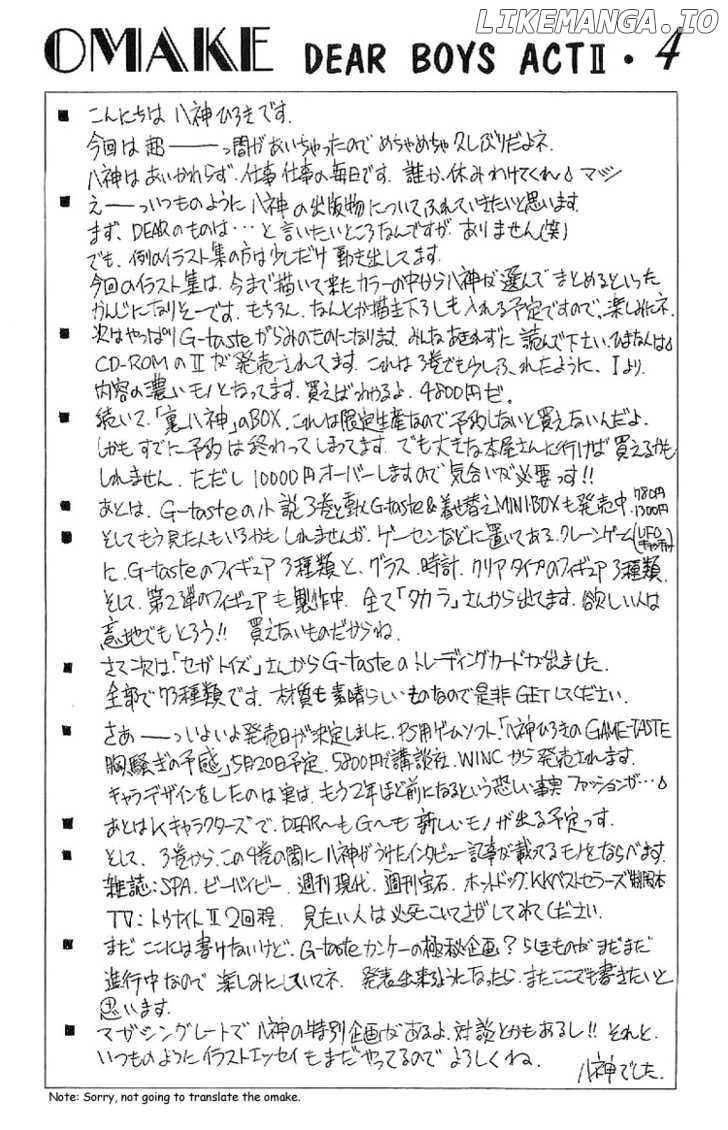 LIKEMANGA.IO
OMAKE DEAR BOYS ACTⅡ・4
■ こんにちは 八神ひろきです.
今回は 超―――っ間があいちゃったので めちゃめちゃ久しぶりだよネ.
八神は あいかわらず. 仕事仕事の毎日です. 誰か. 休みわけてくれ♪ マジ
■ えー―っいつものように 八神の出版物についてふれていきたいと思います.
まず、DEARのものは…と言いたいところなんですが. ありません(笑)
でも. 例のイラスト集の方は少しだけ 動き出してます.
今回のイラスト集は. 今まで描いて来たカラーの中から八神が選んで まとめるといった
かんじになりそーです. もちろん. なんとか描き下ろしも入れる予定ですので. 楽しみにネ.
■ 次はやっぱり G-tasteがらみのものになります. みんなあきれずに 読んで下さい.
CD-ROMのⅡが発売されてます. これは3巻でも少しふれたように. Ⅰより.
内容の濃いモノとなってます. 買えばわかるよ. 4800円ゼ。
■ 続いて.「裏八神」のBOX. これは限定生産なので予約しないと買えないんだよ.
しかも すでに予約は終わってしまってます. でも大きな本屋さんに行けば買えるかも
しれません. ただし 10000円オーバーしますので 気合いが必要っす!!
■ あとは. G-tasteの小説3巻と動くG-taste&着せ替えMINIBOXも発売中. 780円 1300円
■ そしてもう見た人もいるかもしれませんが. ゲーセンなどに置いてある. クレーンゲーム(UFOキャッチャー)
に. G-tasteのフィギュア3種類と. グラス. 時計. クリアタイプのフィギュア3種類.
そして. 第2弾のフィギュアも製作中. 全て「タカラ」さんから出てます. 欲しい人は
意地でもとろう!! 買えないものだからね.
■ さて次は.「セガトイズ」さんからG-tasteのトレーディングカードが出ました.
全部で73種類です. 材質も素晴らしいものなので是非GETしてください.
■ さあ―――っいよいよ発売日が決定しました. PS用ゲームソフト.「八神ひろきのGAME-TASTE
胸騒ぎの予感」5月20日予定. 5800円で講談社. WINCから発売されます.
キャラデザインをしたのは実は. もう2年ほど前になるという恐しい事実 ファッションが…♪
■ あとはKキャラクターズで. DEAR〜もG〜も 新しいモノが出る予定っす.
■ そして. 3巻から. この4巻の間に八神がうけたインタビュー記事が載ってるモノをならべます.
雑誌:SPA. ビーバイビー. 週刊現代. 週刊宝石. ホットドッグ. KKベストセラーズ
TV:トゥナイトⅡ2回程. 見たい人は必死こいてさがしてみてください.
■ まだここには書けないけど. G-tasteカンケーの極秘企画?らしきものがまだまだ
進行中なので 楽しみにしていてネ. 発表出来るようになったら. またここでも書きたいと
思います.
■ マガジングレートで 八神の特別企画があるよ. 対談とかもあるし!! それと.
いつものようにイラストエッセイもまだやってるので よろしくね.
八神でした.
Note: Sorry, not going to translate the omake.